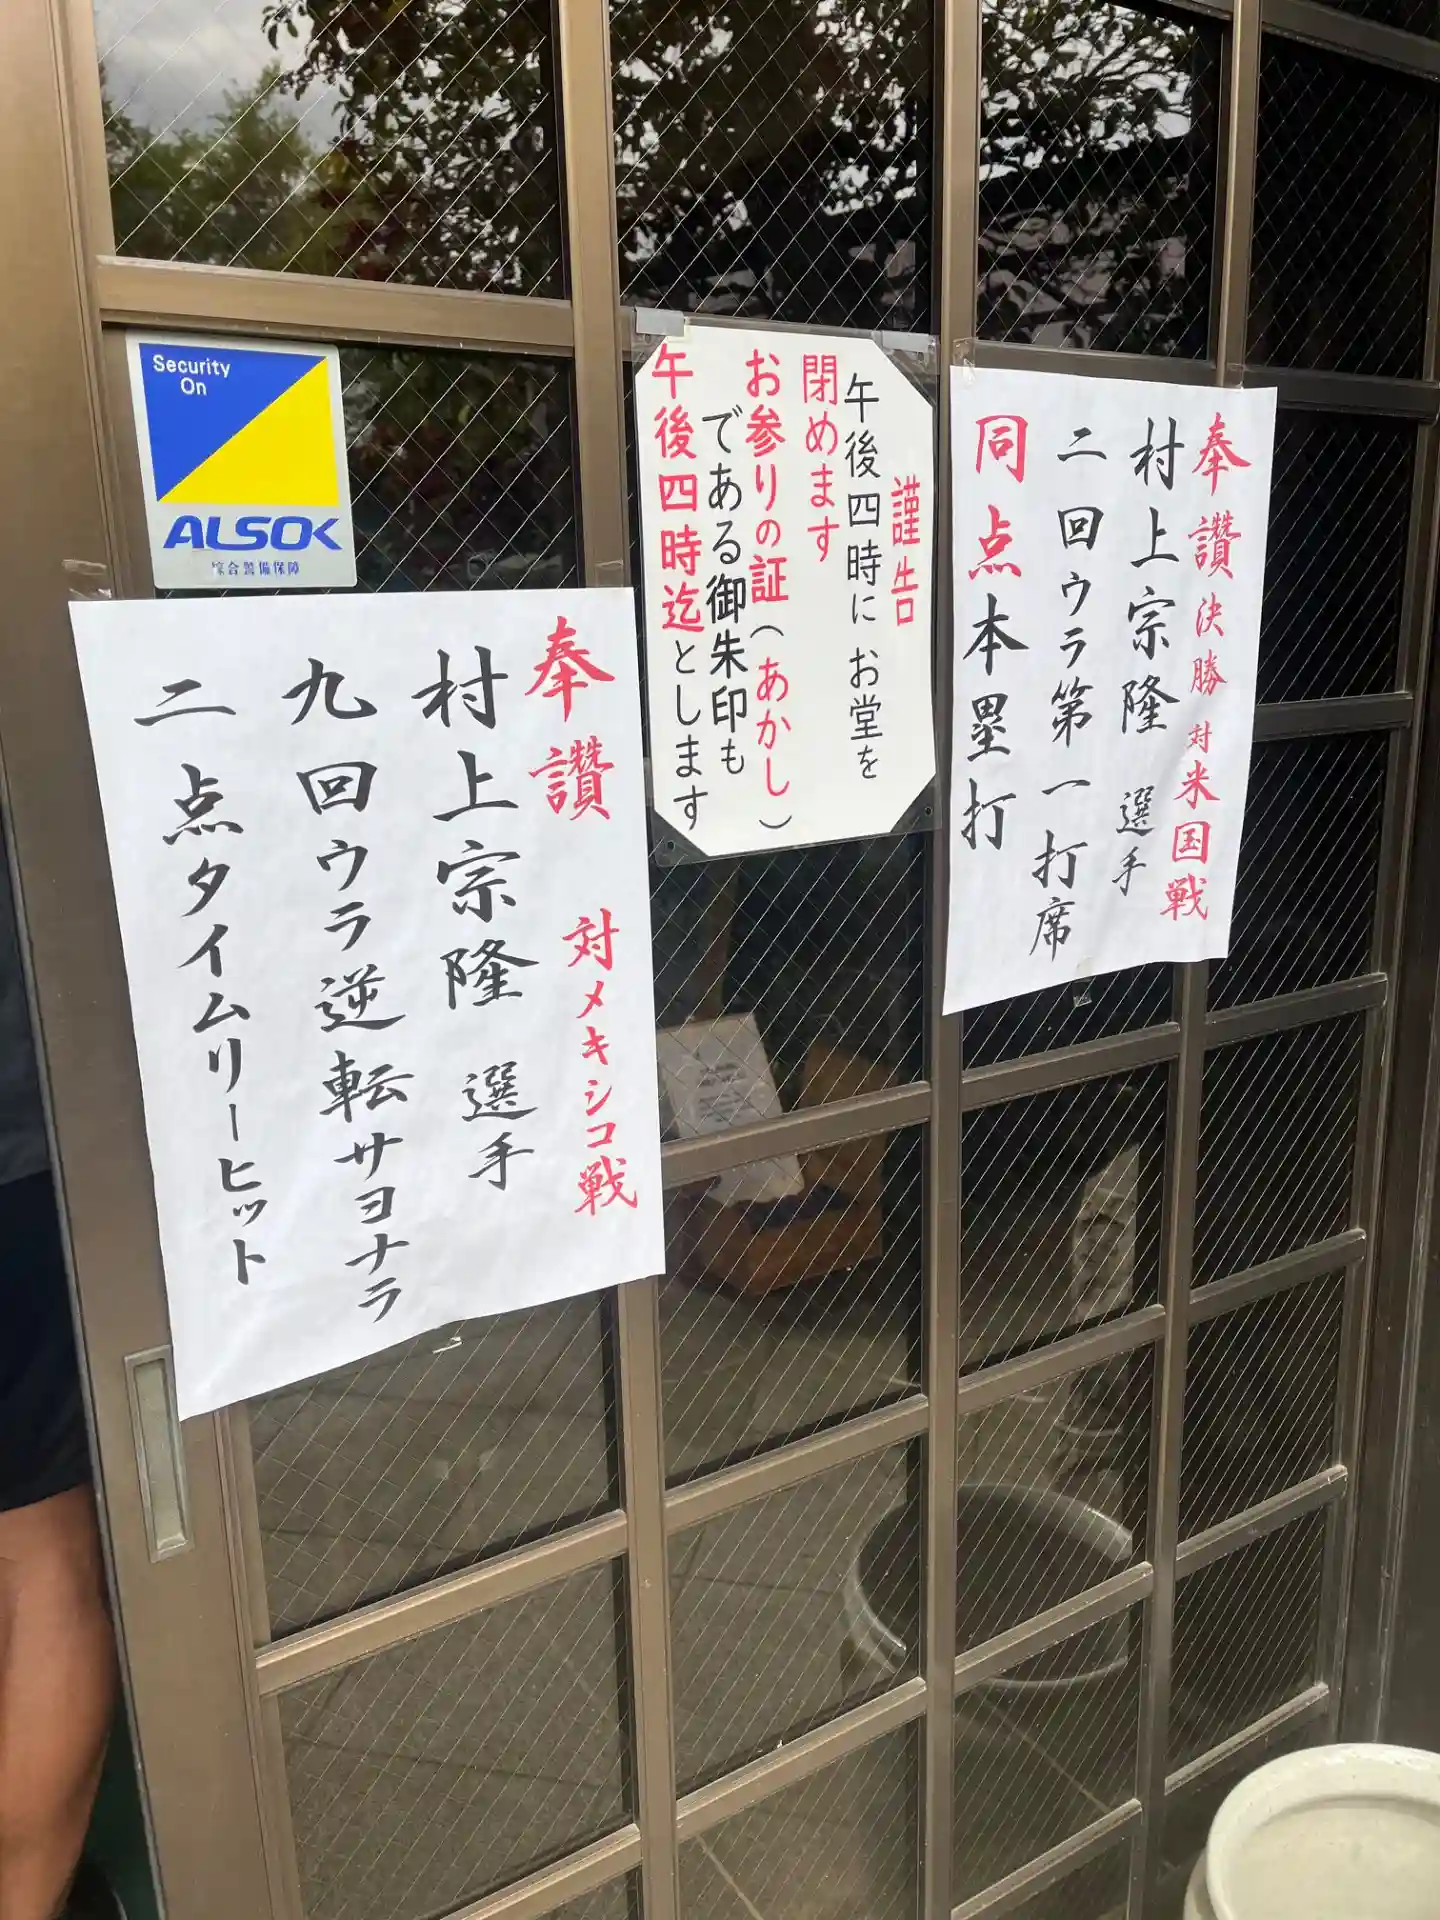 Security
On
ALSOK
綜合警備保障
奉讃決勝対米国戦
村上宗隆 選手
二回ウラ第一打席
同点本塁打
謹告
午後四時に お堂を
閉めます
お参りの証(あかし)
である御朱印も
午後四時迄とします
奉讃 対メキシコ戦
村上宗隆 選手
九回ウラ逆転サヨナラ
二点タイムリーヒット